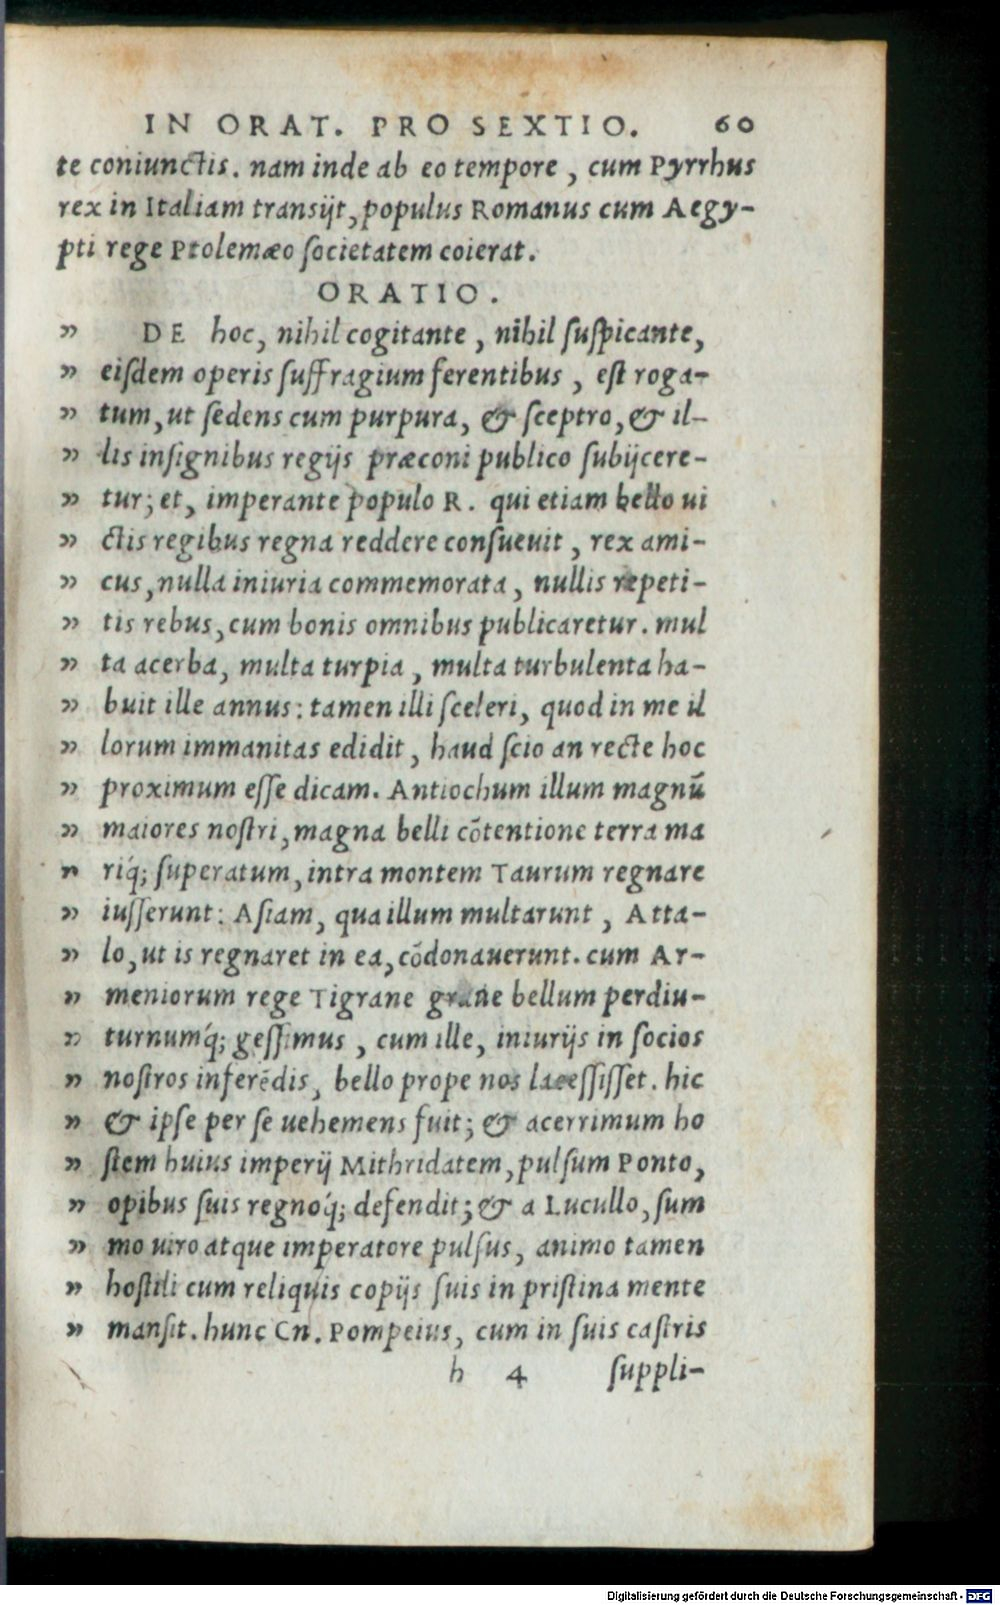 IN ORAT. PRO SEXTIO. 60
te coniunctis. nam inde ab eo tempore, cum Pyrrhus
rex in Italiam transijt, populus Romanus cum Aegy-
pti rege Ptolemæo societatem coierat.
ORATIO.
” DE hoc, nihil cogitante, nihil suspicante,
” eisdem operis suffragium ferentibus, est roga-
” tum, ut sedens cum purpura, & sceptro, & il-
” lis insignibus regijs præconi publico subijcere-
” tur; et, imperante populo R. qui etiam bello ui
” ctis regibus regna reddere consueuit, rex ami-
” cus, nulla iniuria commemorata, nullis repeti-
” tis rebus, cum bonis omnibus publicaretur. mul
” ta acerba, multa turpia, multa turbulenta ha-
” buit ille annus: tamen illi sceleri, quod in me il
” lorum immanitas edidit, haud scio an recte hoc
” proximum esse dicam. Antiochum illum magnū
” maiores nostri, magna belli cōtentione terra ma
” riq́; superatum, intra montem Taurum regnare
” iusserunt: Asiam, qua illum multarunt, Atta-
” lo, ut is regnaret in ea, cōdonauerunt. cum Ar-
” meniorum rege Tigrane graue bellum perdiu-
” turnumq́; gessimus, cum ille, iniurijs in socios
” nostros inferēdis, bello prope nos lacessisset. hic
” & ipse per se uehemens fuit; & acerrimum ho
” stem huius imperij Mithridatem, pulsum Ponto,
” opibus suis regnoq́; defendit; & a Lucullo, sum
” mo uiro atque imperatore pulsus, animo tamen
” hostili cum reliquis copijs suis in pristina mente
” mansit. hunc Cn. Pompeius, cum in suis castris
h 4 suppli-
Digitalisierung gefördert durch die Deutsche Forschungsgemeinschaft - DFG